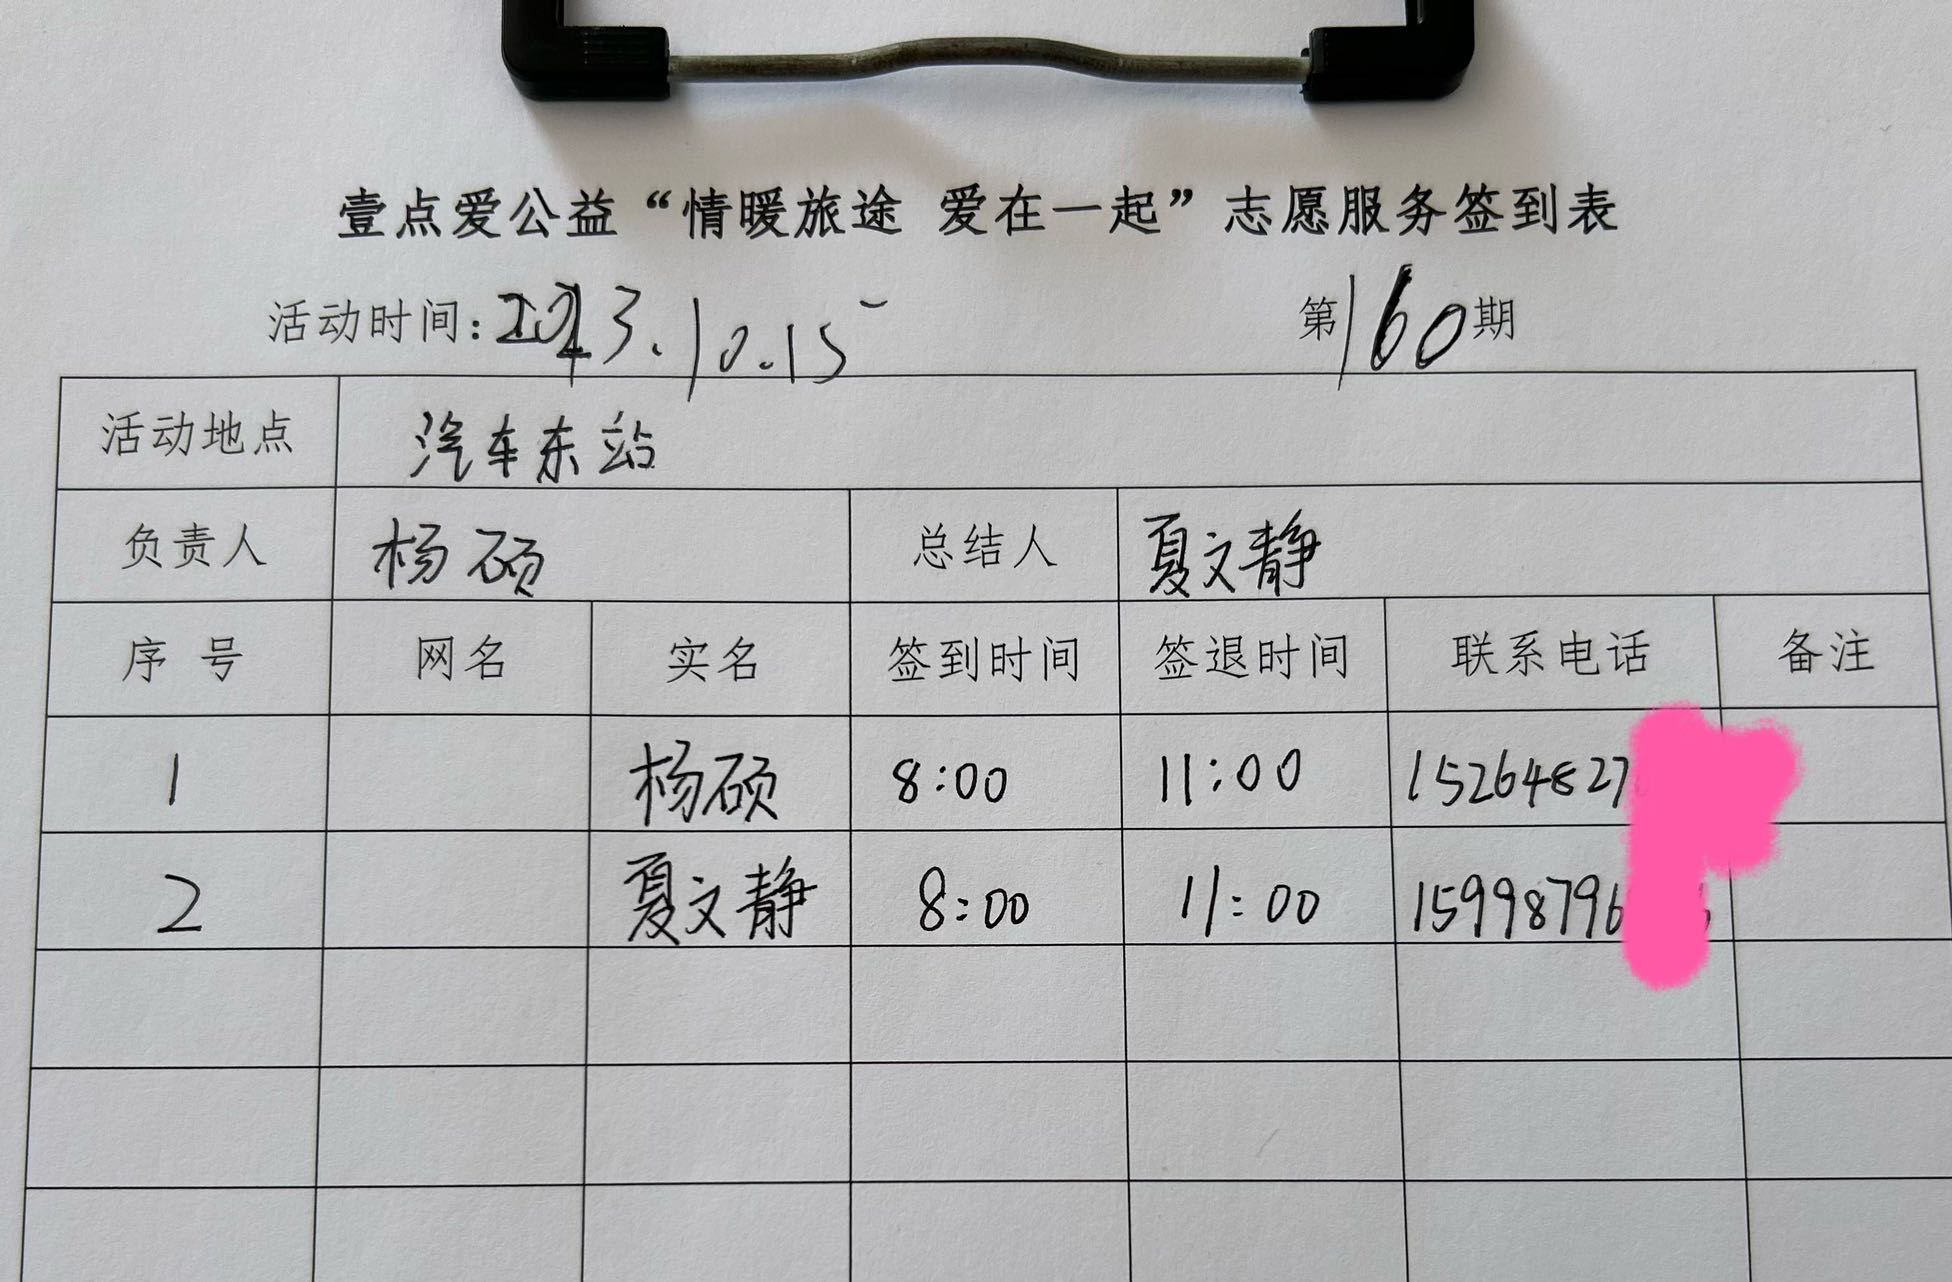 壹点爱公益“情暖旅途 爱在一起”志愿服务签到表
活动时间：2023.10.15 第160期
活动地点 汽车东站
负责人 杨硕 总结人 夏文静
序号 网名 实名 签到时间 签退时间 联系电话 备注
1 杨硕 8:00 11:00 15264827
2 夏文静 8:00 11:00 15998796